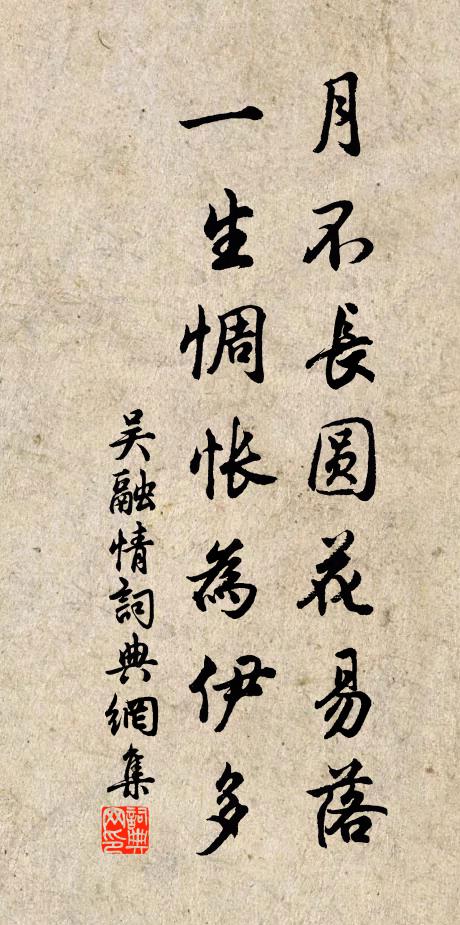 月不長圆花易落
一生惆怅為伊多
吴融情詞典網集
詞典网印